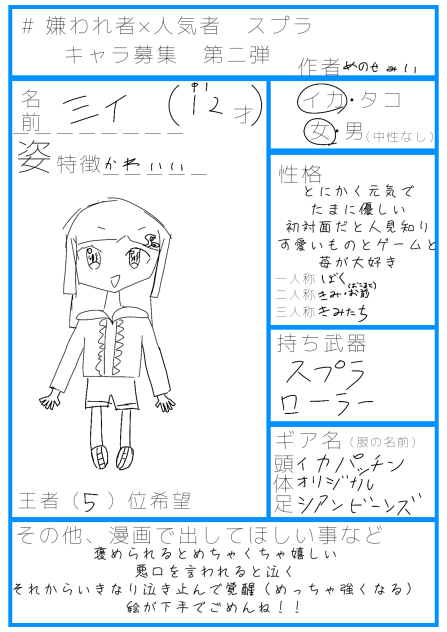 # 嫌われ者×人気者　スプラ
キャラ募集　第二弾
作者 めのせみい
名前 ミイ (中1 12 才)
姿 特徴 かわいい
王者(5)位希望
イカ・タコ
女・男(中性なし)
性格
とにかく元気で
たまに優しい
初対面だと人見知り
可愛いものとゲームと
苺が大好き
一人称 ぼく
二人称 きみ・お前
三人称 きみたち
持ち武器
スプラ
ローラー
ギア名(服の名前)
頭 イカパッチン
体 オリジナル
足 シアンビーンズ
その他、漫画で出してほしい事など
褒められるとめちゃくちゃ嬉しい
悪口を言われると泣く
それからいきなり泣き止んで覚醒(めっちゃ強くなる)
絵が下手でごめんね！！